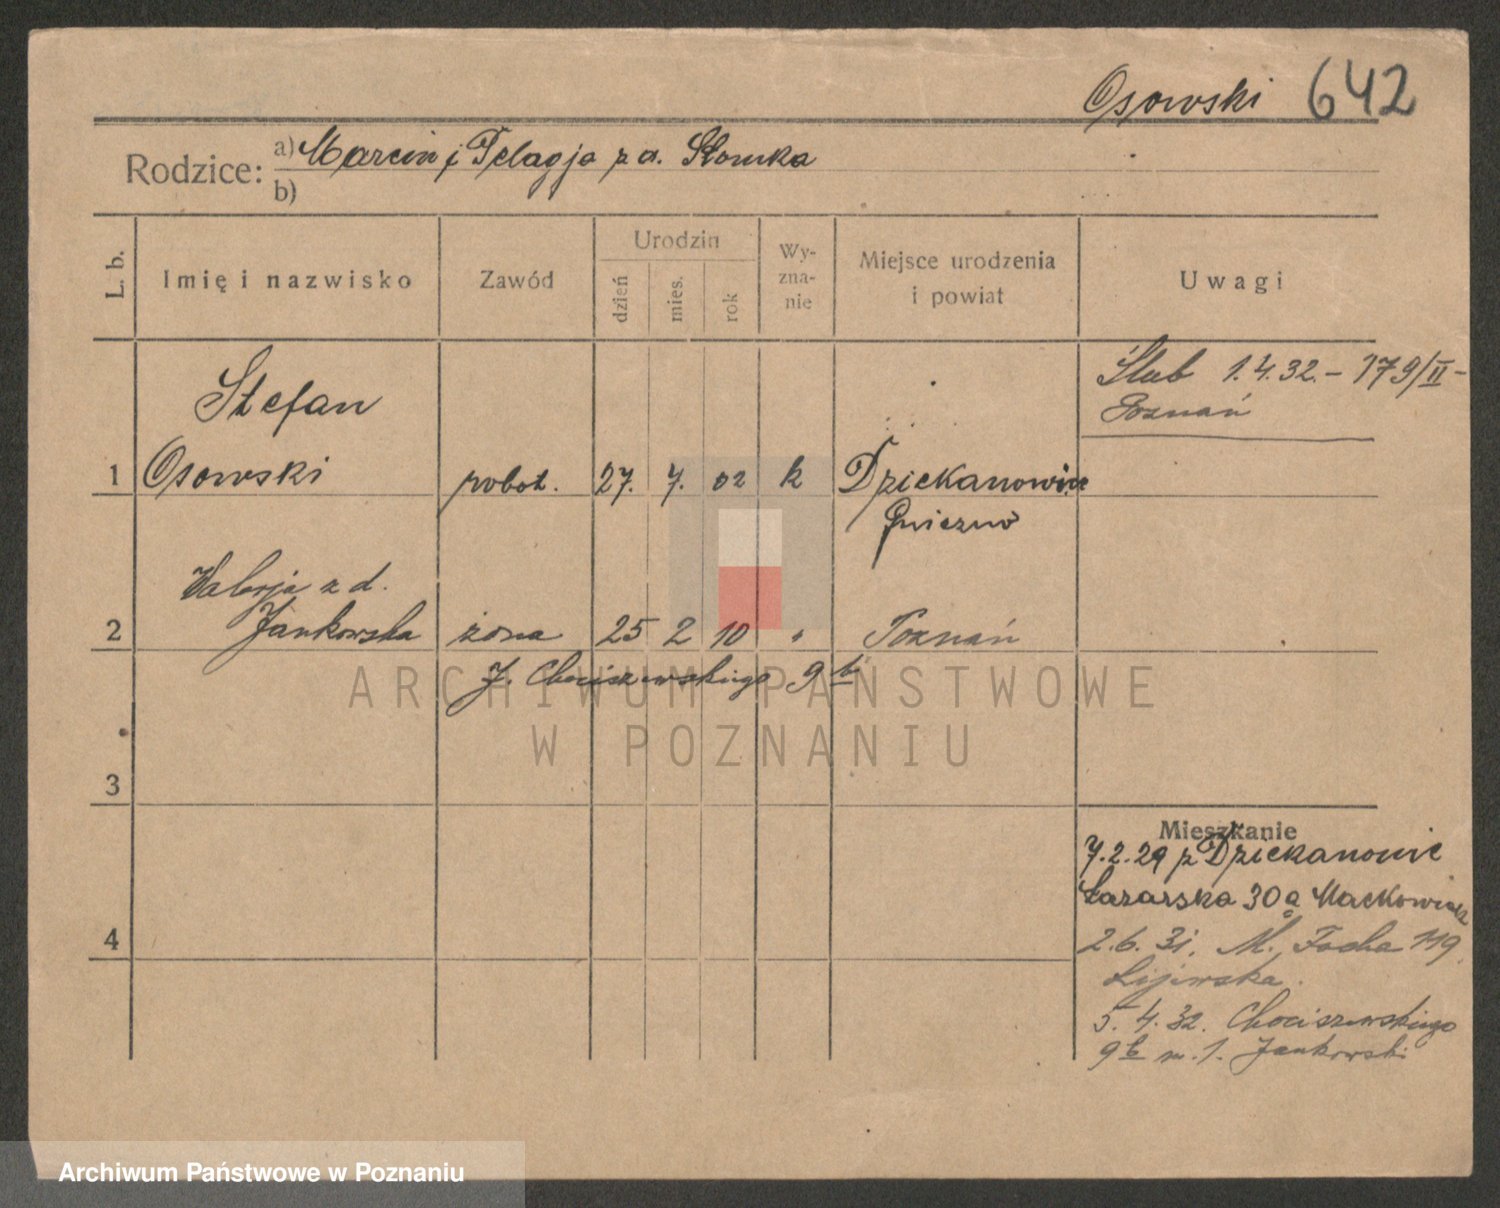 Osowski 642
Rodzice: a) Marcin i Pelagja z d. Słomka
b)
L. b. Imię i nazwisko Zawód Urodzin dzień mies. rok Wy-zna-nie Miejsce urodzenia i powiat Uwagi
Ślub 1.4.32. – 179/II –
Poznań
Stefan
1 Osowski robot. 27. 7. 02 k Dziekanowice
Gniezno
Walerja z d.
2 Jankowska żona 25 2 10 " Poznań
J. Chociszewskiego 9b
ARCHIWUM PAŃSTWOWE
W POZNANIU
3
Mieszkanie
7.2.29 z Dziekanowic
Łazarska 30a Maćkowiak
4
2.6.31. M. Focha 119
Lijewska.
5.4.32. Chociszewskiego
9b m. 1. Jankowski
Archiwum Państwowe w Poznaniu